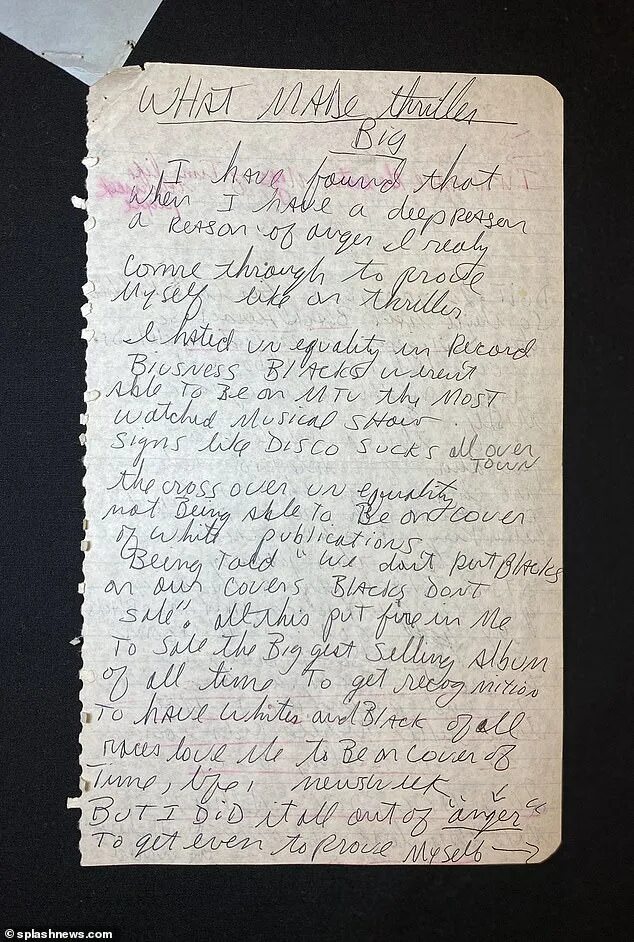 WHAT MADE thriller
Big
I have found that
when I HAVE a deep REASON
a REASON of anger I realy
come through to prove
Myself like on thriller
I hated un equality in Record
Biusness Blacks werent
Able To Be on MTV the MOST
watched Musical SHOW.
Signs like DISCO SUCKS all over
TOWN
the cross over un equality
not Being Able To Be on cover
of white publications
Being Told "We don't put Blacks
on our covers Blacks DONT
Sale". all this put fire in Me
To Sale the Biggest Selling Album
of all time To get recognition
To have whites and BLACK of all
races love Me to Be on Cover of
Time, life, newsweek
BUT I DiD it all out of "anger"
To get even to prove Myself →
splashnews.com